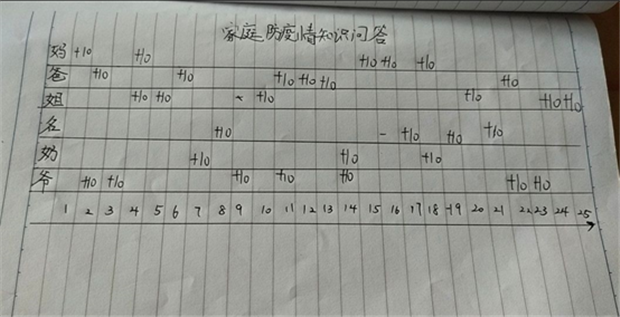 家庭防疫情知识问答
妈 +10 +10 +10 +10 +10
爸 +10 +10 +10 +10 +10 +10
姐 +10 +10 × +10 +10 +10 +10
名 +10 - +10 +10 +10
奶 +10 +10 +10
爷 +10 +10 +10 +10 +10 +10 +10
1 2 3 4 5 6 7 8 9 10 11 12 13 14 15 16 17 18 19 20 21 22 23 24 25